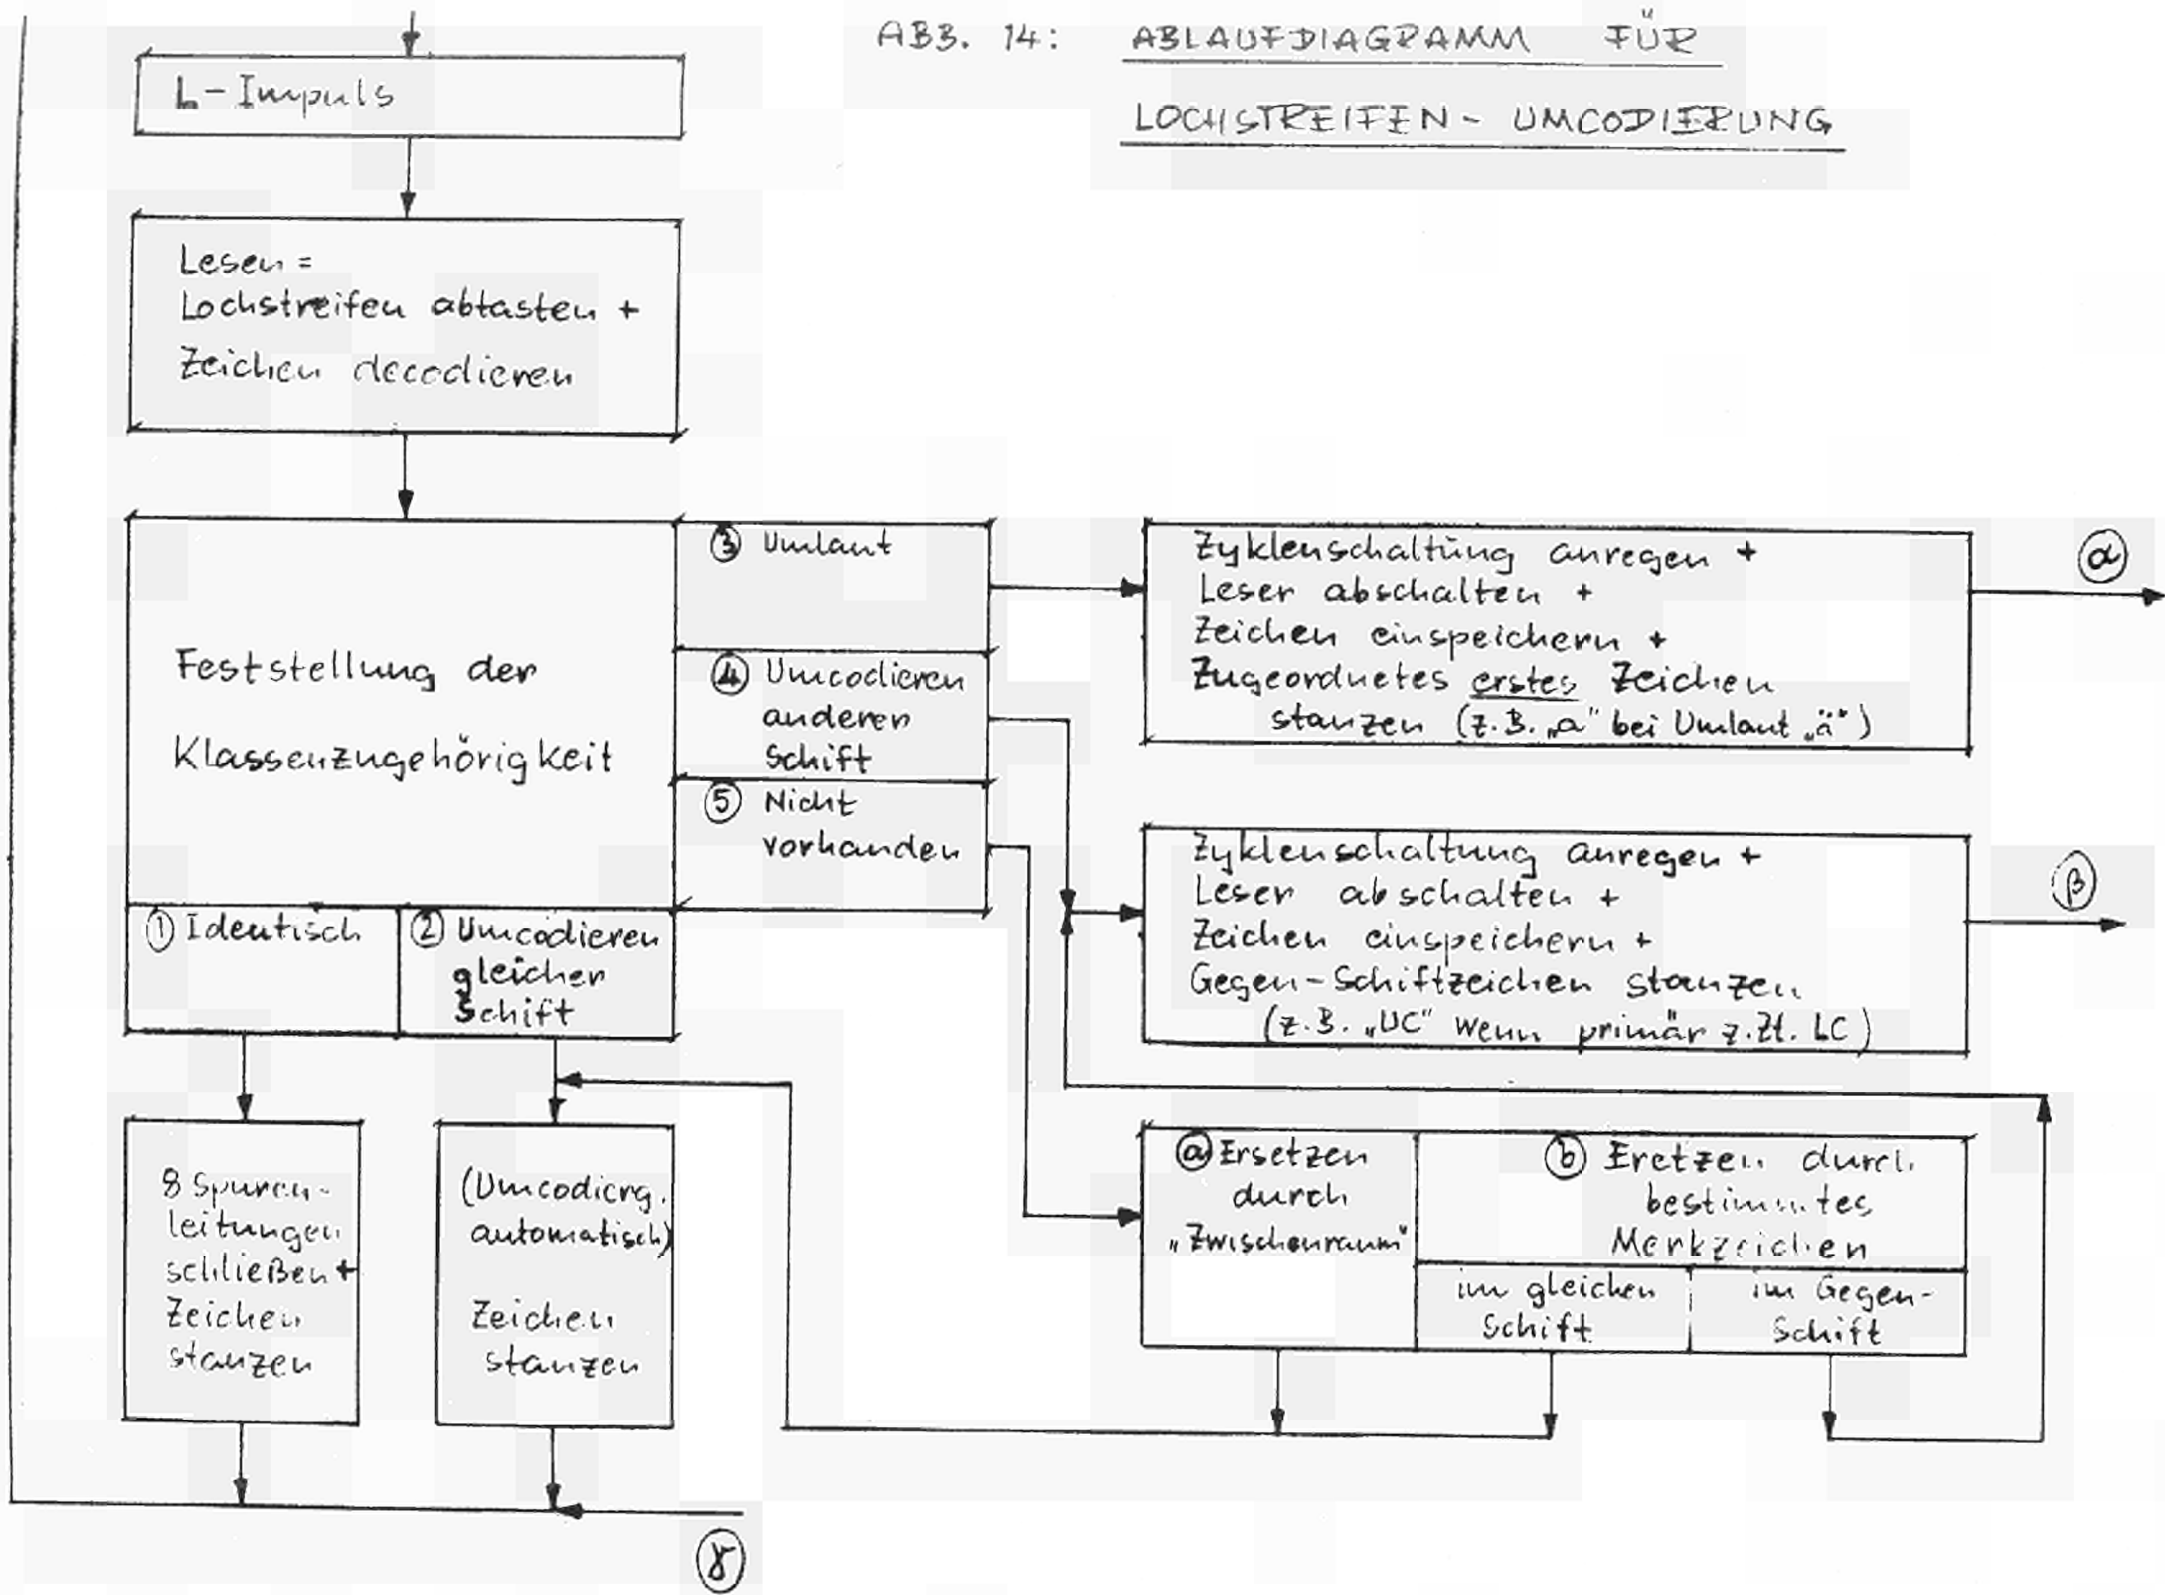 ABB. 14: ABLAUFDIAGRAMM FÜR
LOCHSTREIFEN - UMCODIERUNG
L-Impuls
Lesen =
Lochstreifen abtasten +
Zeichen decodieren
Feststellung der
Klassenzugehörigkeit
③ Umlaut
④ Umcodieren
anderer
Schift
⑤ Nicht
vorhanden
① Identisch
② Umcodieren
gleicher
Schift
Zyklenschaltung anregen +
Leser abschalten +
Zeichen einspeichern +
Zugeordnetes erstes Zeichen
stanzen (z.B. „a" bei Umlaut „ä")
α
Zyklenschaltung anregen +
Leser abschalten +
Zeichen einspeichern +
Gegen-Schiftzeichen stanzen
(z.B. „UC" wenn primär z.Zt. LC)
β
8 Spuren-
leitungen
schließen +
Zeichen
stanzen
(Umcodierg.
automatisch)
Zeichen
stanzen
ⓐ Ersetzen
durch
„Zwischenraum"
ⓑ Eretzen durch
bestimmtes
Merkzeichen
im gleichen
Schift
im Gegen-
Schift
γ